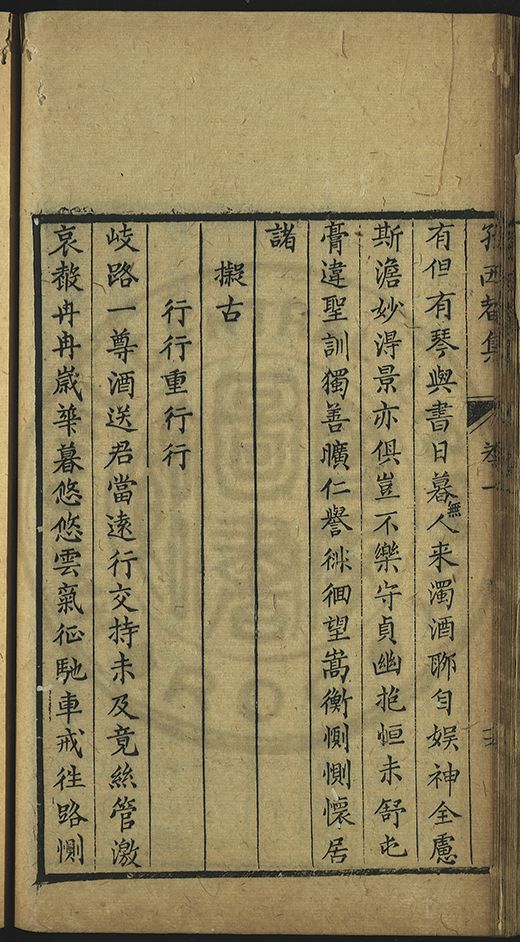 孫西菴集 卷一
有但有琴與書日暮無人来濁酒聊自娱神全慮
斯澹妙淂景亦俱豈不樂守貞幽抱恒未舒屯
膏違聖訓獨善曠仁譽徘徊望嵩衡惻惻懷居
諸
擬古
行行重行行
岐路一尊酒送君當遠行交持未及竟絲管激
哀
冉冉歲華暮悠悠雲氣征馳車戒徃路惻